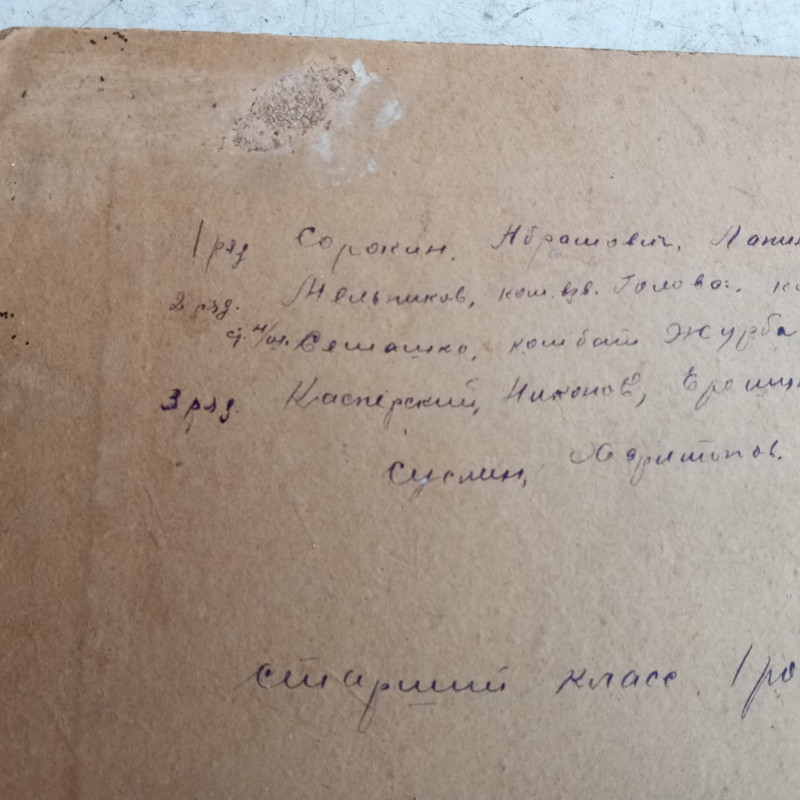 1 ряд Сорокин, Абрамович, Лапи
2 ряд. Мельников, ком. вв. Голова., к
Семашко, комбат Журба
3 ряд. Касперский, Никонов, Ерошен
Суслин, Харитонов.
старший класс 1 ро